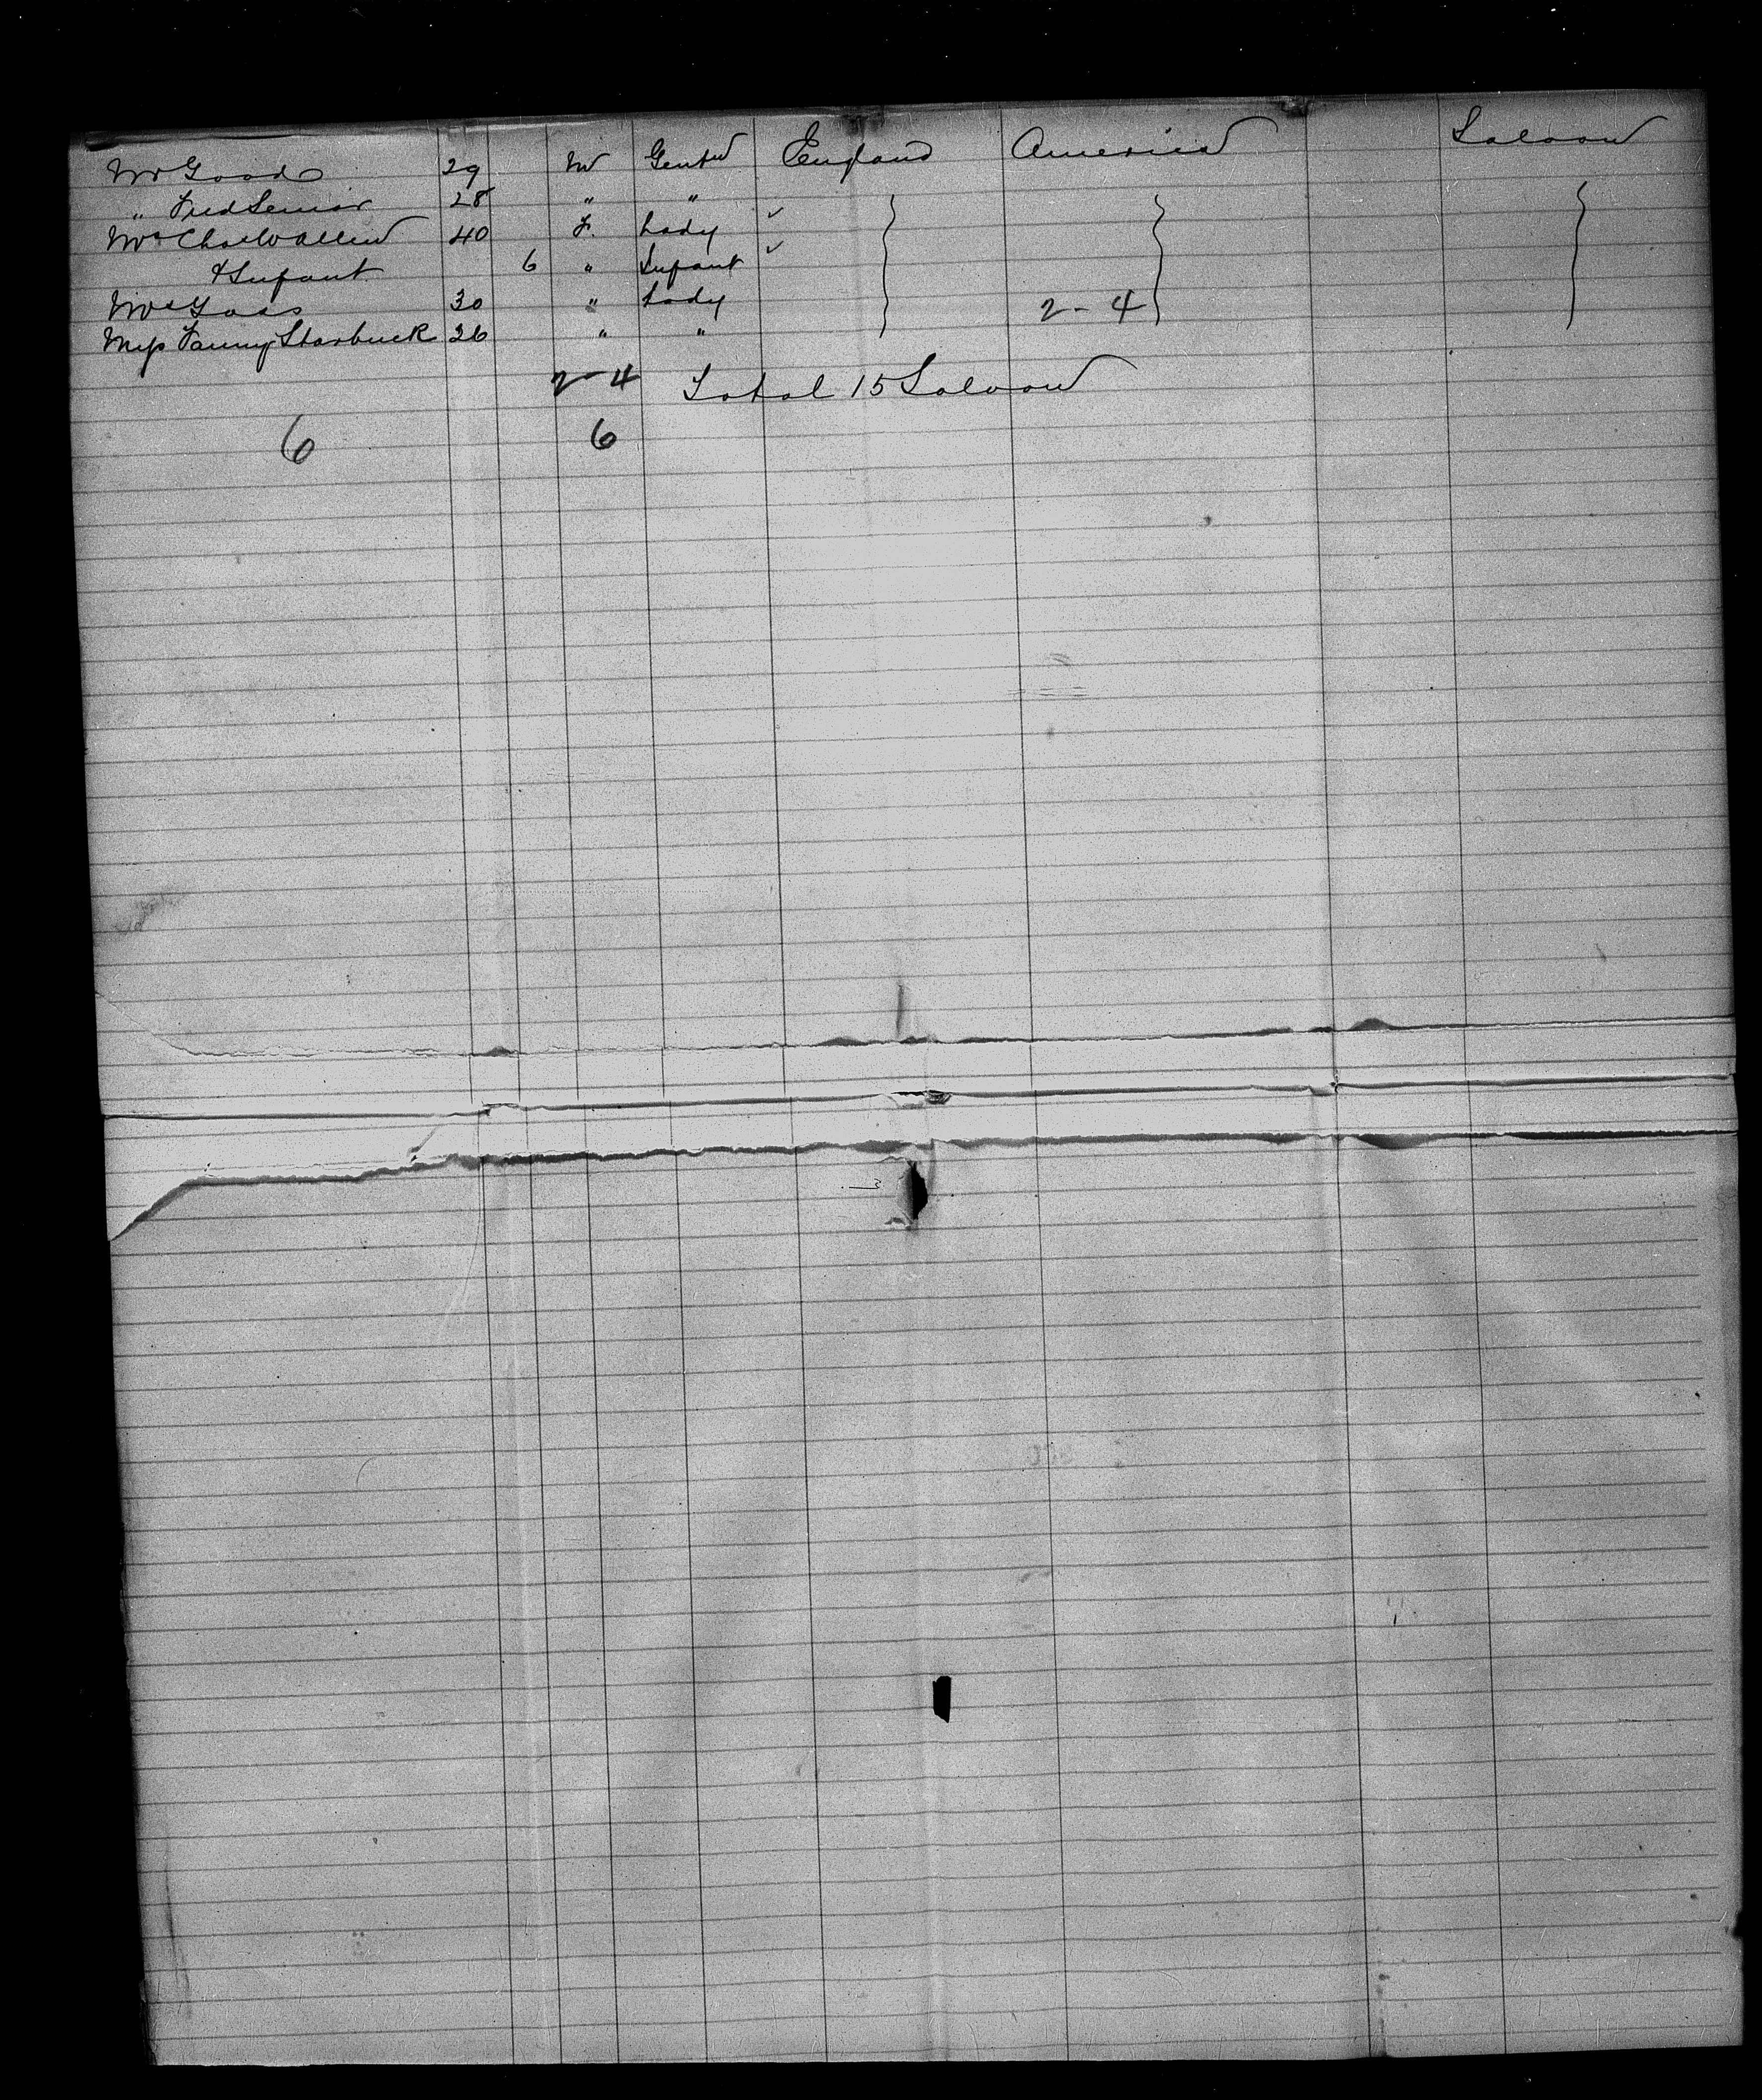 Mr Good 29 M Gentn England America Saloon
" Fred Senior 28 " "
Mrs Chas W Allen 40 F. Lady ✓
& Infant 6 " Infant ✓
Mrs Goss 30 " Lady 2-4
Miss Fanny Starbuck 26 " "
2-4 Total 15 Saloon
6 6